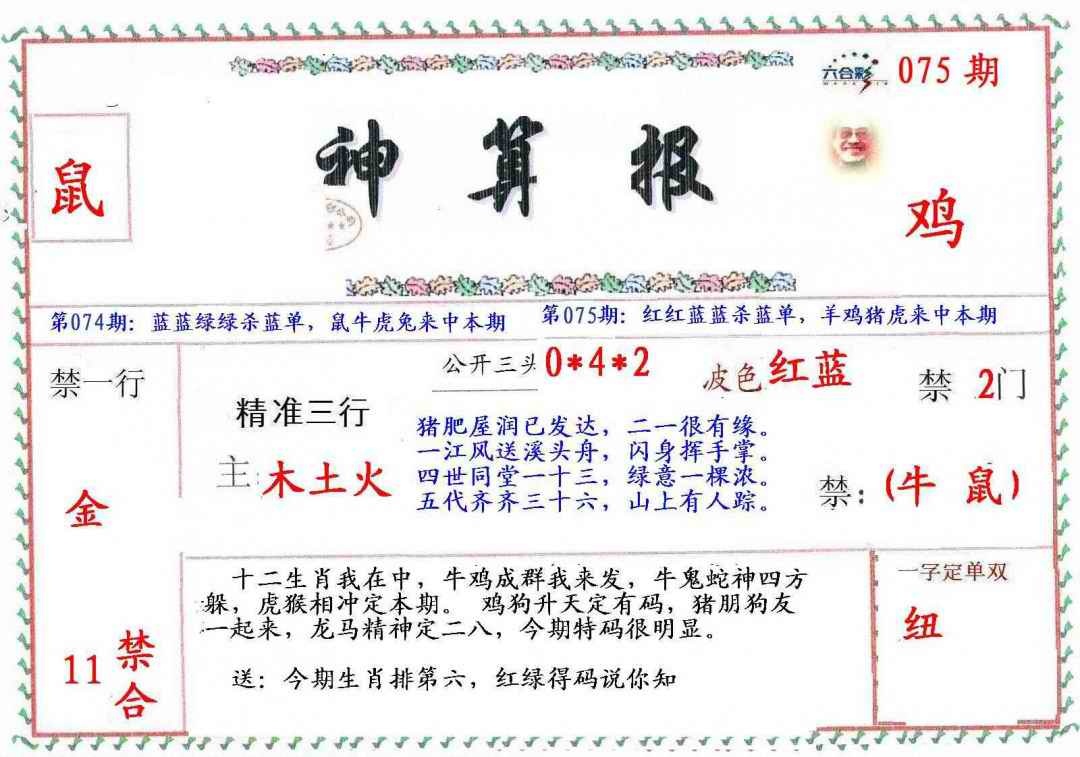 六合彩 075 期
神算报
鼠
鸡
第074期：蓝蓝绿绿杀蓝单，鼠牛虎兔来中本期
第075期：红红蓝蓝杀蓝单，羊鸡猪虎来中本期
禁一行
金
11 禁合
精准三行
主：木土火
公开三头 0*4*2
波色 红蓝
猪肥屋润已发达，二一很有缘。
一江风送溪头舟，闪身挥手掌。
四世同堂一十三，绿意一棵浓。
五代齐齐三十六，山上有人踪。
禁 2门
禁：(牛 鼠)
十二生肖我在中，牛鸡成群我来发，牛鬼蛇神四方
躲，虎猴相冲定本期。 鸡狗升天定有码，猪朋狗友
一起来，龙马精神定二八，今期特码很明显。
送：今期生肖排第六，红绿得码说你知
一字定单双
纽